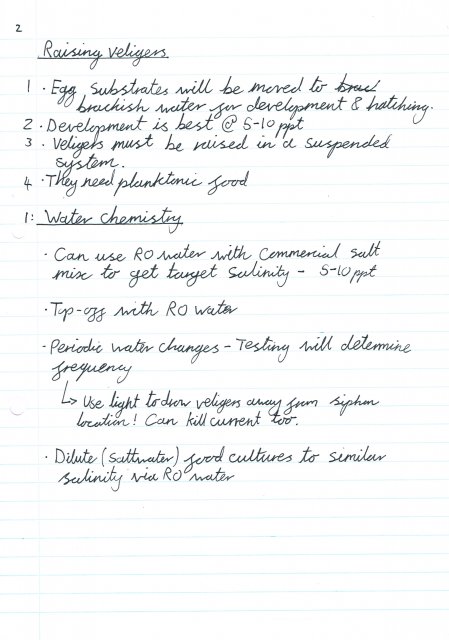 2
Raising Veligers
1 · Egg substrates will be moved to brac
brackish water for development & hatching.
2 · Development is best @ 5-10 ppt
3 · Veligers must be raised in a suspended
system.
4 · They need planktonic food
1: Water Chemistry
· Can use RO water with commercial salt
mix to get target salinity - 5-10ppt
· Top-off with RO water
· Periodic water changes - Testing will determine
frequency
↳ Use light to draw veligers away from siphon
location! Can kill current too.
· Dilute (saltwater) food cultures to similar
salinity via RO water